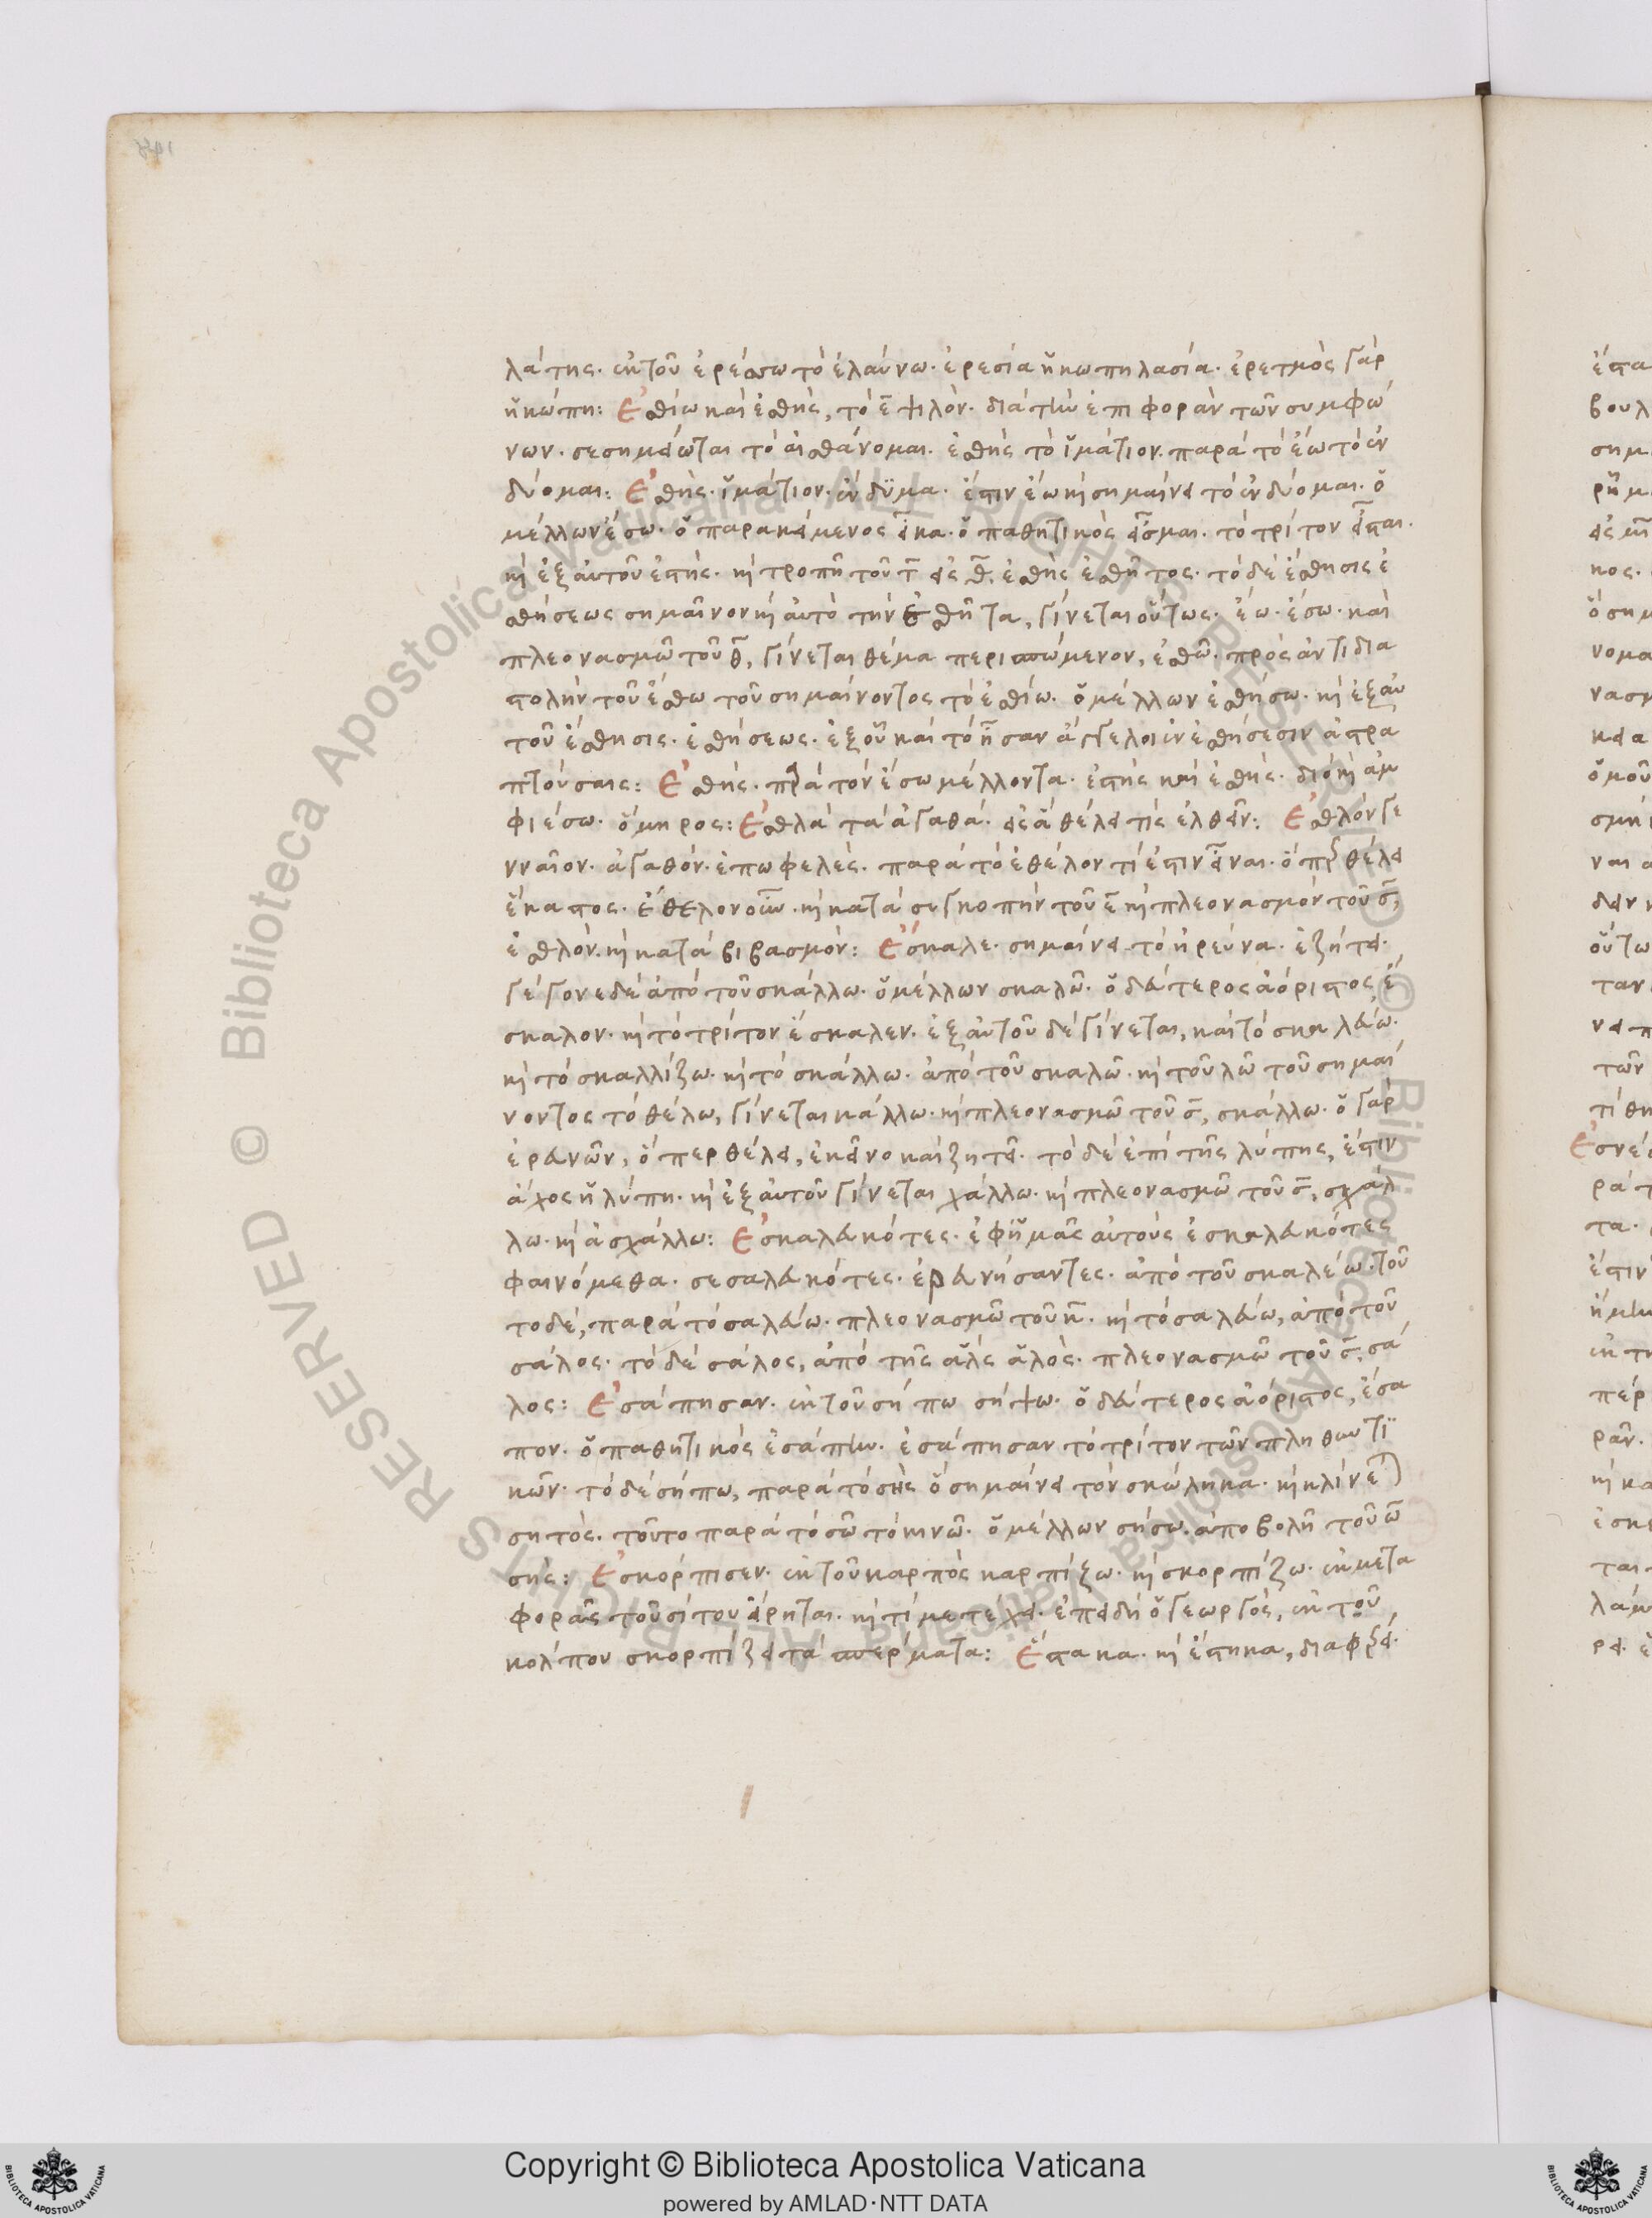 λάτης· ἐκ τοῦ ἐρέσσω τὸ ἐλαύνω· ἐρεσία ἡ κωπηλασία· ἐρετμὸς γὰρ
ἡ κώπη: Ἐσθίω καὶ ἐσθὴς, τὸ ε̅ ψιλόν· διὰ τὴν ἐπιφορὰν τῶν συμφώ
νων· σεσημείωται τὸ αἰσθάνομαι. ἐσθὴς τὸ ἱμάτιον. παρὰ τὸ ἕω τὸ ἐν
δύομαι: Ἐσθὴς· ἱμάτιον· ἔνδυμα· ἔστιν ἕω κὶ σημαίνει τὸ ἐνδύομαι. ὁ
μέλλων ἕσω· ὁ παρακείμενος εἷκα· ὁ παθητικὸς εἷσμαι. τὸ τρίτον εἷσται.
κὶ ἐξ αὐτοῦ ἐστής· κὶ τροπῇ τοῦ τ̅ εἰς θ̅. ἐσθὴς ἐσθῆτος· τὸ δὲ ἔσθησις ἐ
σθήσεως σημαῖνον κὶ αὐτὸ τὴν ἐσθῆτα, γίνεται οὕτως· ἕω· ἕσω· καὶ
πλεονασμῷ τοῦ θ̅, γίνεται θέμα περισπώμενον, ἐσθῶ· πρὸς ἀντιδια
στολὴν τοῦ ἔσθω τοῦ σημαίνοντος τὸ ἐσθίω· ὁ μέλλων ἐσθήσω· κὶ ἐξ αὐ
τοῦ ἔσθησις· ἐσθήσεως· ἐξ οὗ καὶ τὸ ἦσαν ἄγγελοι ἐν ἐσθήσεσιν ἀστρα
πτούσαις: Ἐσθής· παρὰ τὸν ἕσω μέλλοντα· ἐστὴς καὶ ἐσθής· διὸ κὶ ἀμ
φιέσω· ὅμηρος: Ἐσθλὰ τὰ ἀγαθά· εἰς ἃ θέλει τίς ἐλθεῖν: Ἐσθλόν γε
νναῖον· ἀγαθόν· ἐπωφελὲς· παρὰ τὸ ἐθέλον τί ἐστιν εἶναι· ὅπερ θέλει
ἕκαστος· ἐθελονοῦν· κὶ κατὰ συγκοπὴν τοῦ ε̅ κὶ πλεονασμὸν τοῦ σ̅,
ἐσθλὸν. κὶ καταβιβασμόν: Ἔσκαλε· σημαίνει τὸ ἠρεύνα· ἐζήτει·
γέγονε δὲ ἀπὸ τοῦ σκάλλω· ὁ μέλλων σκαλῶ· ὁ δεύτερος ἀόριστος, ἔ
σκαλον· κὶ τὸ τρίτον ἔσκαλεν. ἐξ αὐτοῦ δὲ γίνεται, καὶ τὸ σκαλεύω·
κὶ τὸ σκαλλίζω· κὶ τὸ σκάλλω· ἀπὸ τοῦ σκαλῶ· κὶ τοῦ λῶ τοῦ σημαί
νοντος τὸ θέλω, γίνεται κάλλω· κὶ πλεονασμῷ τοῦ σ̅, σκάλλω· ὁ γὰρ
ἐρευνῶν, ὅπερ θέλει, ἐκεῖνο καὶ ζητεῖ· τὸ δὲ ἐπὶ τῆς λύπης, ἔστιν
ἄχος ἡ λύπη· κὶ ἐξ αὐτοῦ γίνεται χάλλω· κὶ πλεονασμῷ τοῦ σ̅, σχάλ
λω· κὶ ἀσχάλλω: Ἐσκαλευκότες· ἐφ ἡμᾶς αὐτοὺς ἐσκαλευκότες
φαινόμεθα· σεσαλευκότες· ἐρευνήσαντες· ἀπὸ τοῦ σκαλέυω· τοῦ
το δὲ, παρὰ τὸ σαλεύω· πλεονασμῷ τοῦ κ̅· κὶ τὸ σαλεύω, ἀπὸ τοῦ
σάλος· τὸ δὲ σάλος, ἀπὸ τῆς ἅλς ἁλὸς· πλεονασμῷ τοῦ σ̅, σά
λος: Ἐσάπησαν· ἐκ τοῦ σήπω σήψω· ὁ δεύτερος ἀόριστος, ἔσα
πον· ὁ παθητικὸς ἐσάπην· ἐσάπησαν τὸ τρίτον τῶν πληθυντι
κῶν· τὸ δὲ σήπω, παρὰ τὸ σὴς ὃ σημαίνει τὸν σκώληκα· κὶ κλίνε
σητὸς· τοῦτο παρὰ τὸ σῶ τὸ κινῶ· ὁ μέλλων σήσω· ἀποβολῇ τοῦ ω̅
σής: Ἐσκόρπισεν· ἐκ τοῦ καρπὸς καρπίζω· κὶ σκορπίζω· ἐκ μετα
φορᾶς τοῦ σίτου εἴρηται· κὶ τί μετέχει· ἐπειδὴ ὁ γεωργὸς, ἐκ τοῦ
κολπου σκορπίζει τὰ σπέρματα: Ἕστακα· κὶ ἕστηκα, διαφέρει·